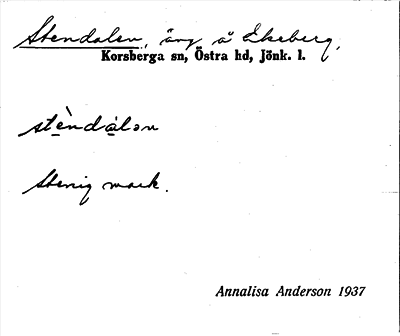 Stendalen, äng å Ekeberg,
Korsberga sn, Östra hd, Jönk. l.
stèndàlən
Stenig mark.
Annalisa Anderson 1937